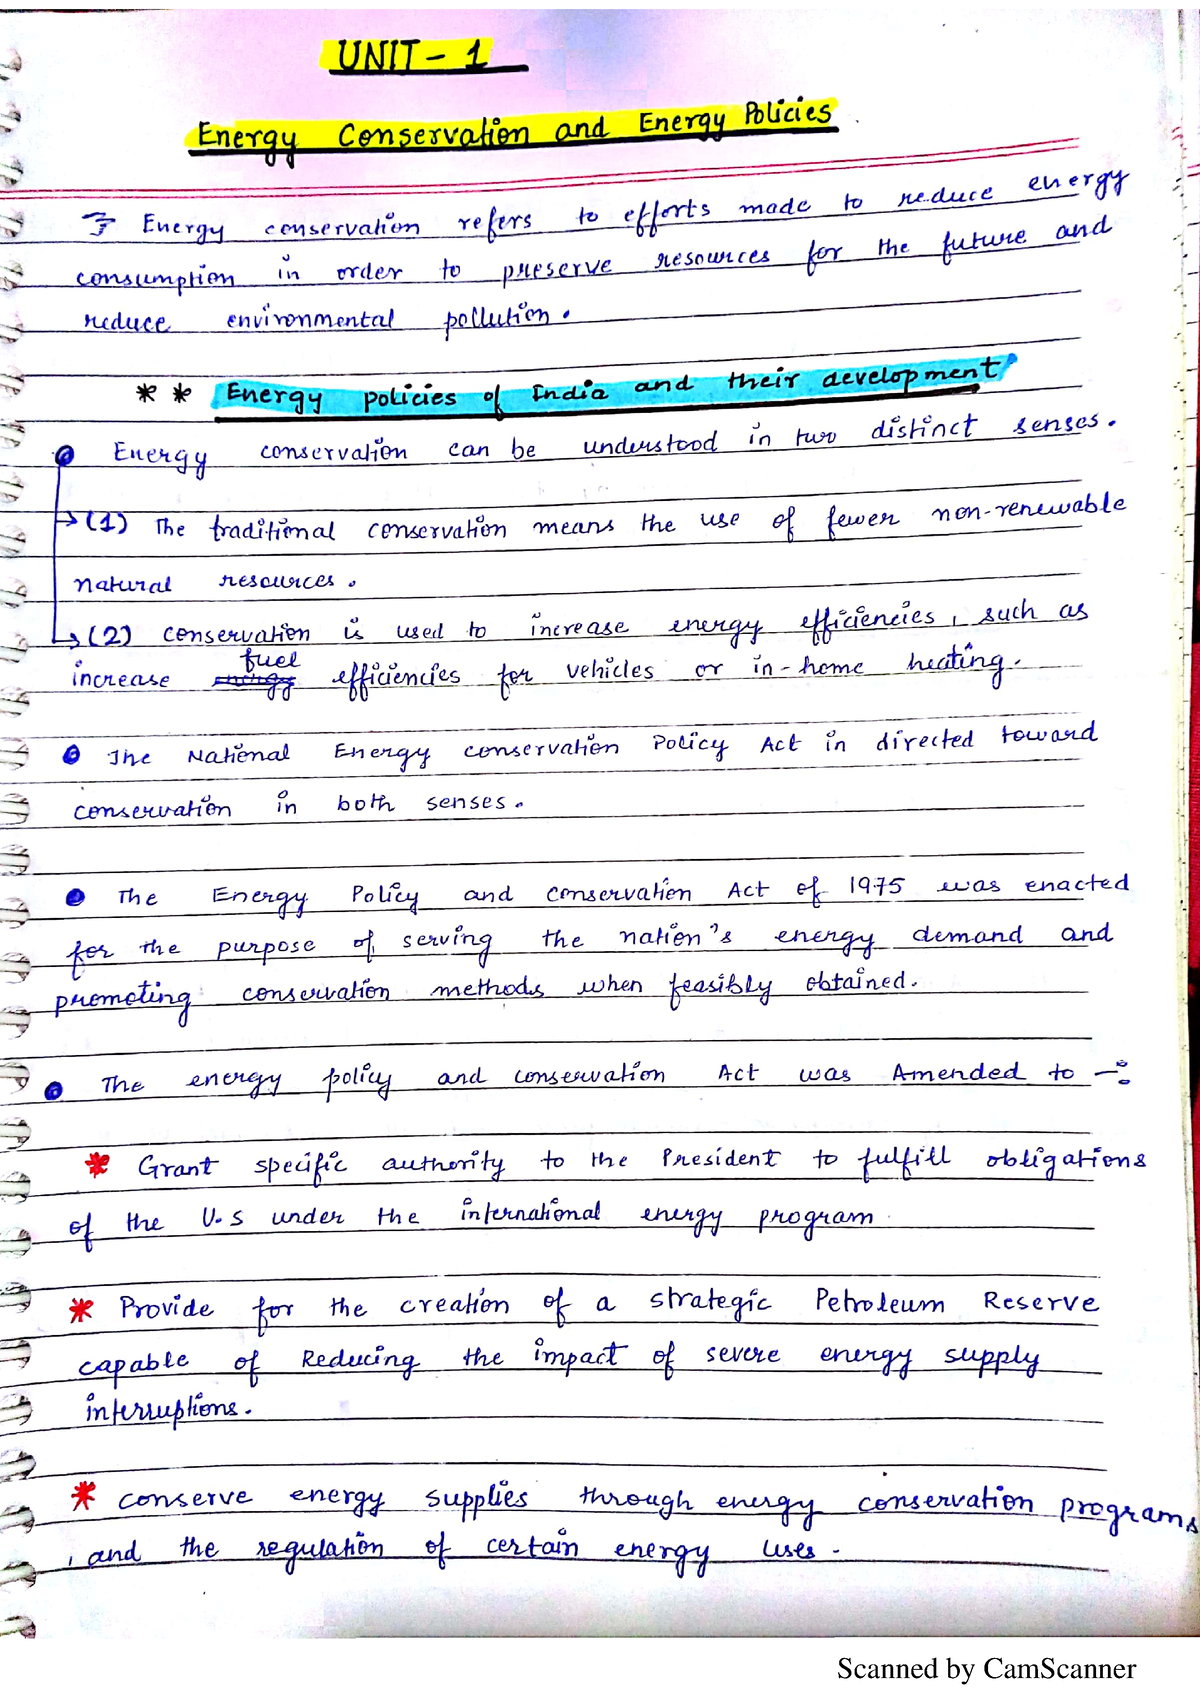 UNIT - 1
Energy Conservation and Energy Policies
Energy conservation refers to efforts made to reduce energy
consumption in order to preserve resources for the future and
reduce environmental pollution.
** Energy policies of India and their development
Energy conservation can be understood in two distinct senses.
→(1) The traditional conservation means the use of fewer non-renewable
natural resources.
→(2) conservation is used to increase energy efficiencies, such as
fuel
increase energy efficiencies for vehicles or in-home heating.
The National Energy conservation Policy Act in directed toward
conservation in both senses.
The Energy Policy and conservation Act of 1975 was enacted
for the purpose of serving the nation's energy demand and
promoting conservation methods when feasibly obtained.
The energy policy and conservation Act was Amended to -:
* Grant specific authority to the President to fulfill obligations
of the U.S under the international energy program
* Provide for the creation of a strategic Petroleum Reserve
capable of Reducing the impact of severe energy supply
interruptions.
* conserve energy supplies through energy conservation programs
, and the regulation of certain energy uses.
Scanned by CamScanner